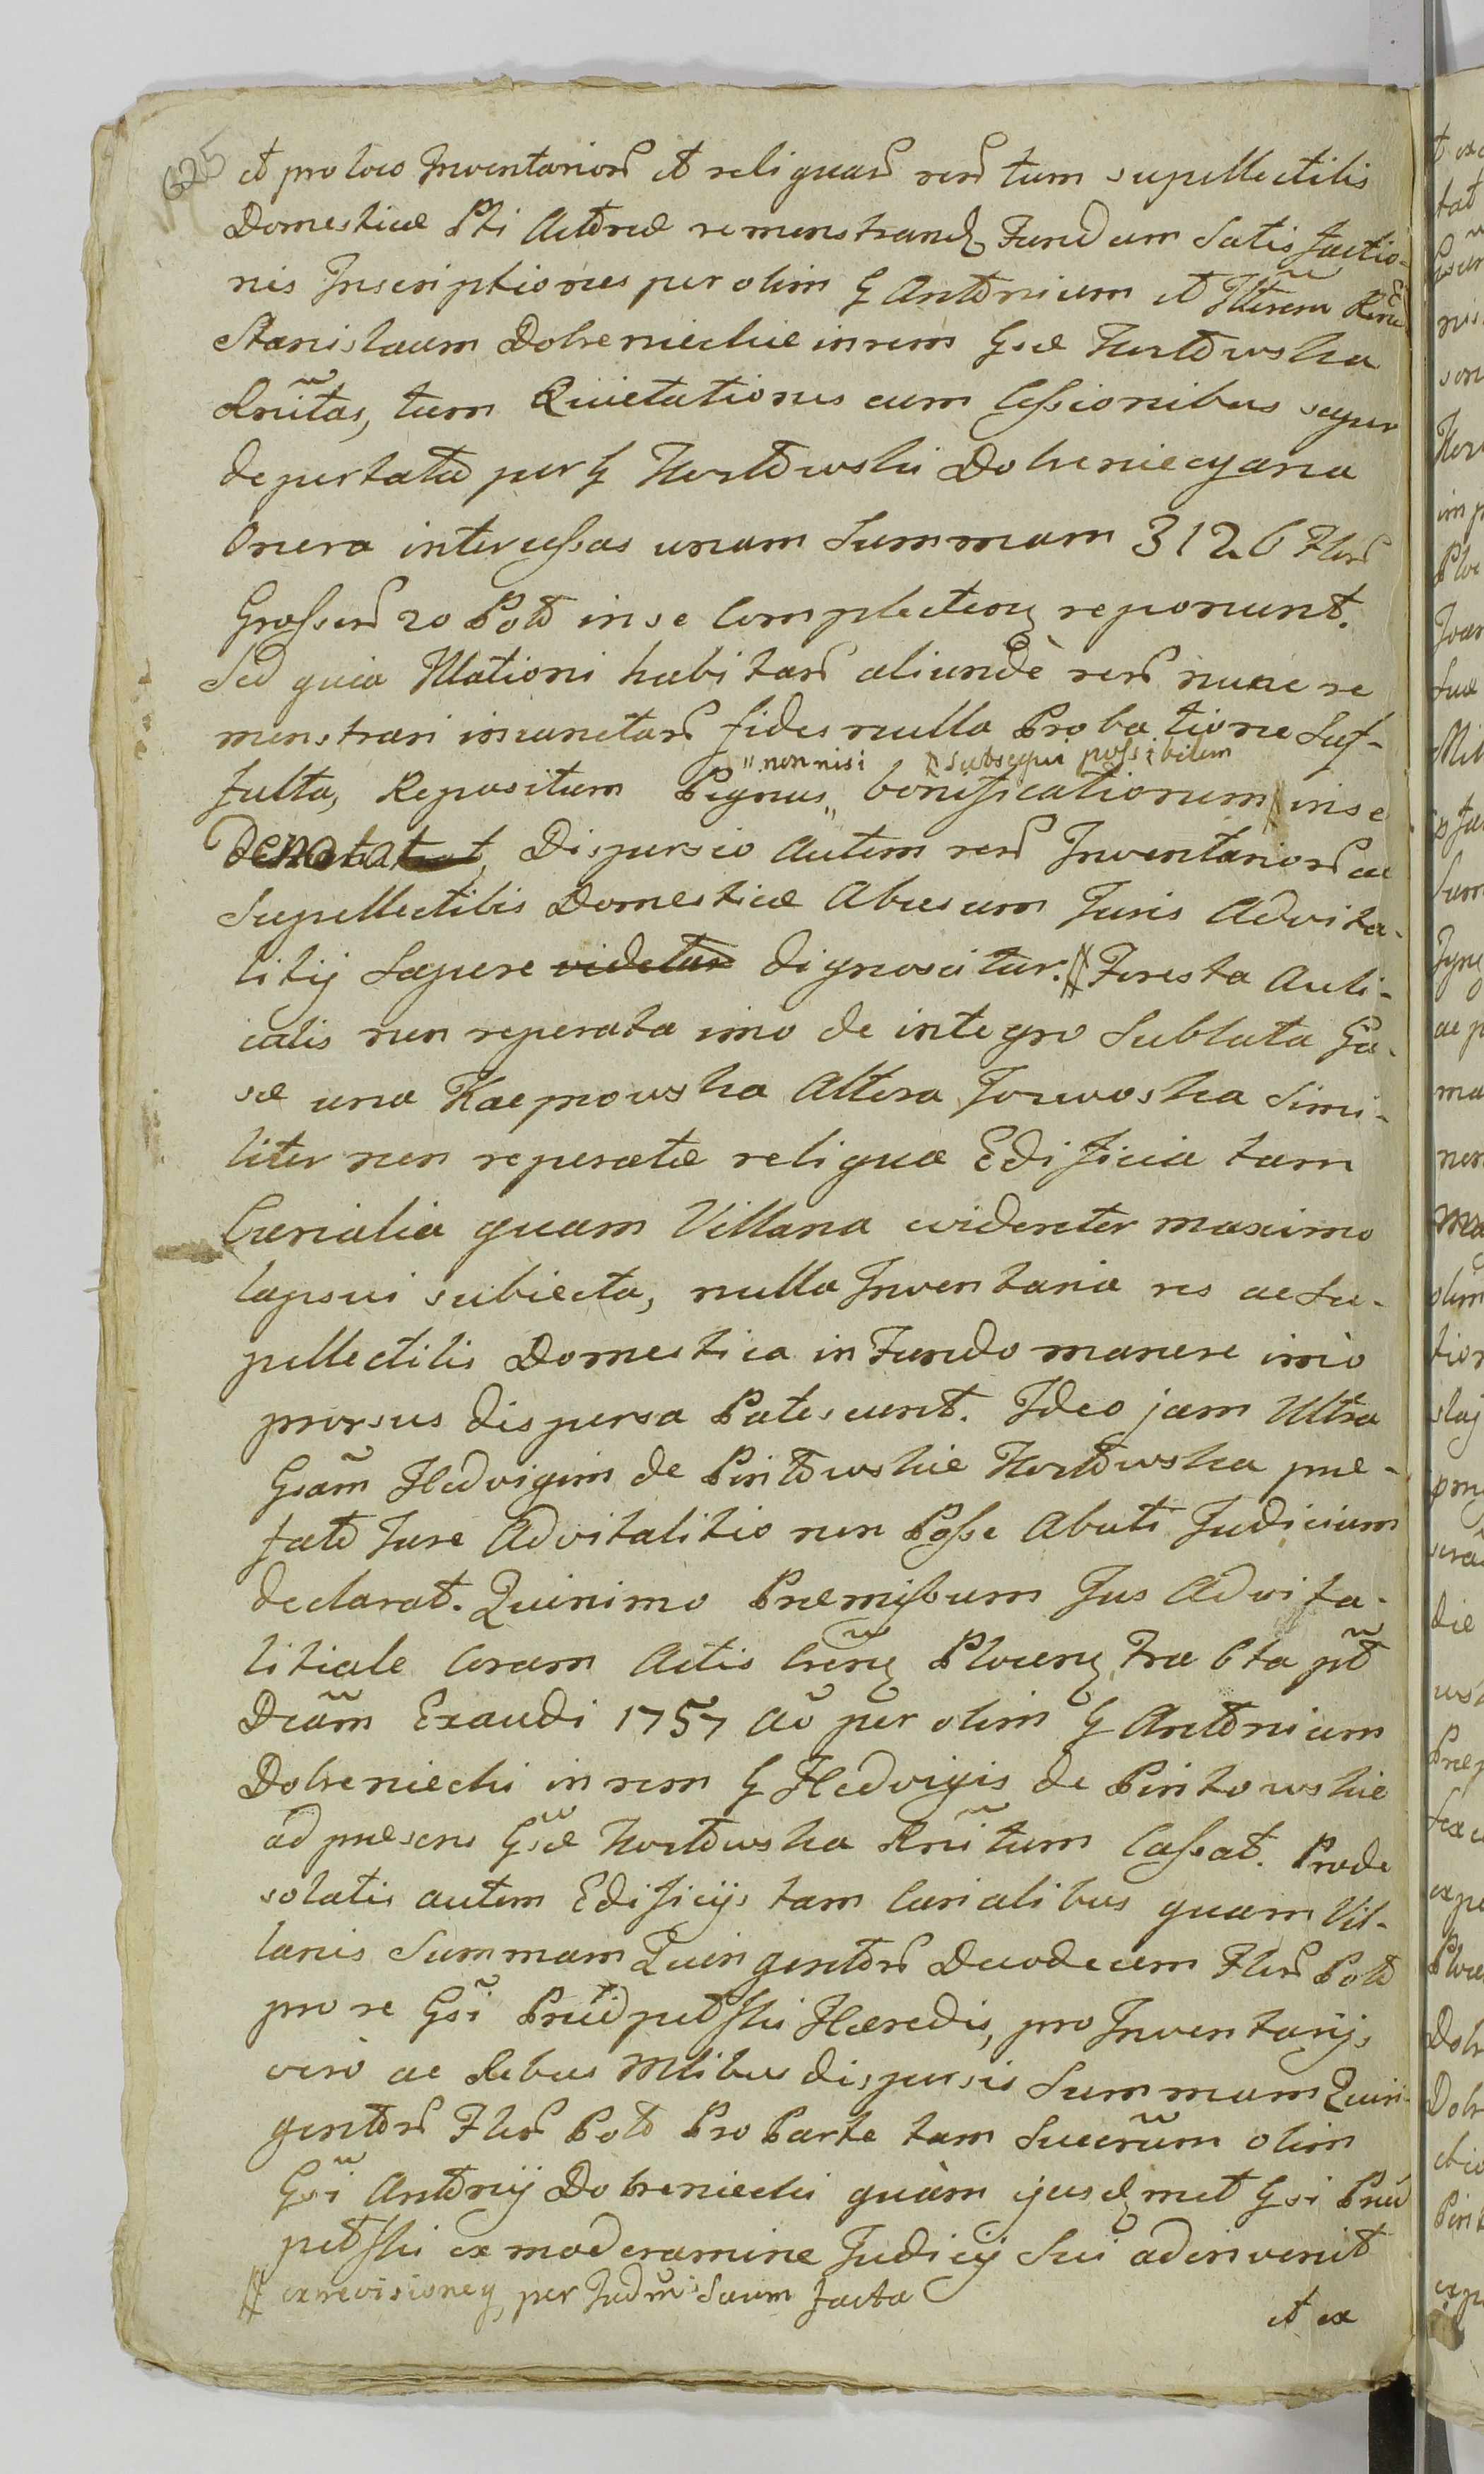 625
et pro loco Inventarior et reliquar rer tum supellectilis
Domesticæ Pti Actoreæ remonstrandq Fundum Satisfactio-
nis Inscriptiones per olim G Antonium et Illrem Rndu
Stanislaum Dobrnieckie in rem Gsæ Kortowska
Rnitas, tum Quietationes cum Cessionibus super
deportata per G Kortowski Dobrniecyana
Onera intercessas unam Summam 3126 Flor
Grosser 20 Pol in se Complecten reponunt.
Sed quia Illationi habitar aliundè rer nunc re
monstrari iniunctar fides nulla Probatione Suf-
fulta, Repositum Pignus „ bonificationum // in se
„ non nisi // subsequi possibilem
Denotat, Dispersio Autem rer Inventarior ac
Supellectilis Domesticæ Abusum Juris Advita-
litij Sapere videtur dignoscitur. // Foresta Auli-
calis non reperata imo de integro Sublata Ga-
sæ una Kaepnowska Altera Jozwoska Simi-
liter non reperatæ reliqua Edificia tam
Curialia quam Villana evidenter maximo
lapsui subiecta, nulla Inventaria res ac Su-
pellectilis Domestica in Fundo manere imò
prorsus dispersa Patescunt. Ideo jam Ultra
Gsam Hedvigim de Piritowskie Kortowska præ-
fato Jure Advitalitio non Posse Abuti Judicium
declarat. Quinimo Præmissum Jus Advita-
litiale Coram Actis Cren Plocen fra 6ta pt
Dcam Exaudi 1757 Ao per olim G Antonium
Dobrniecki in rem G Hedvigis de Piritowskie
ad præsens Gsæ Kortowska Rnitum Cassat. Pro de
solatis autem Edificijs tam Curialibus quam Vil-
lanis Summam Quingentor Duodecem Flor Pol
pro re Gsi Przedpełski Hæredis, pro Inventarijs
verò ac Rebus Mlibus dispersis Summam Quin-
gentor Flor Pol Pro Parte tam Sucrum olim
Gsi Antonij Dobrniecki quàm ejusdmet Gsi Przed
pełski ex moderamine Judicij Sui adinvenit
// ex revisione q per Judm Suum facta
et ex